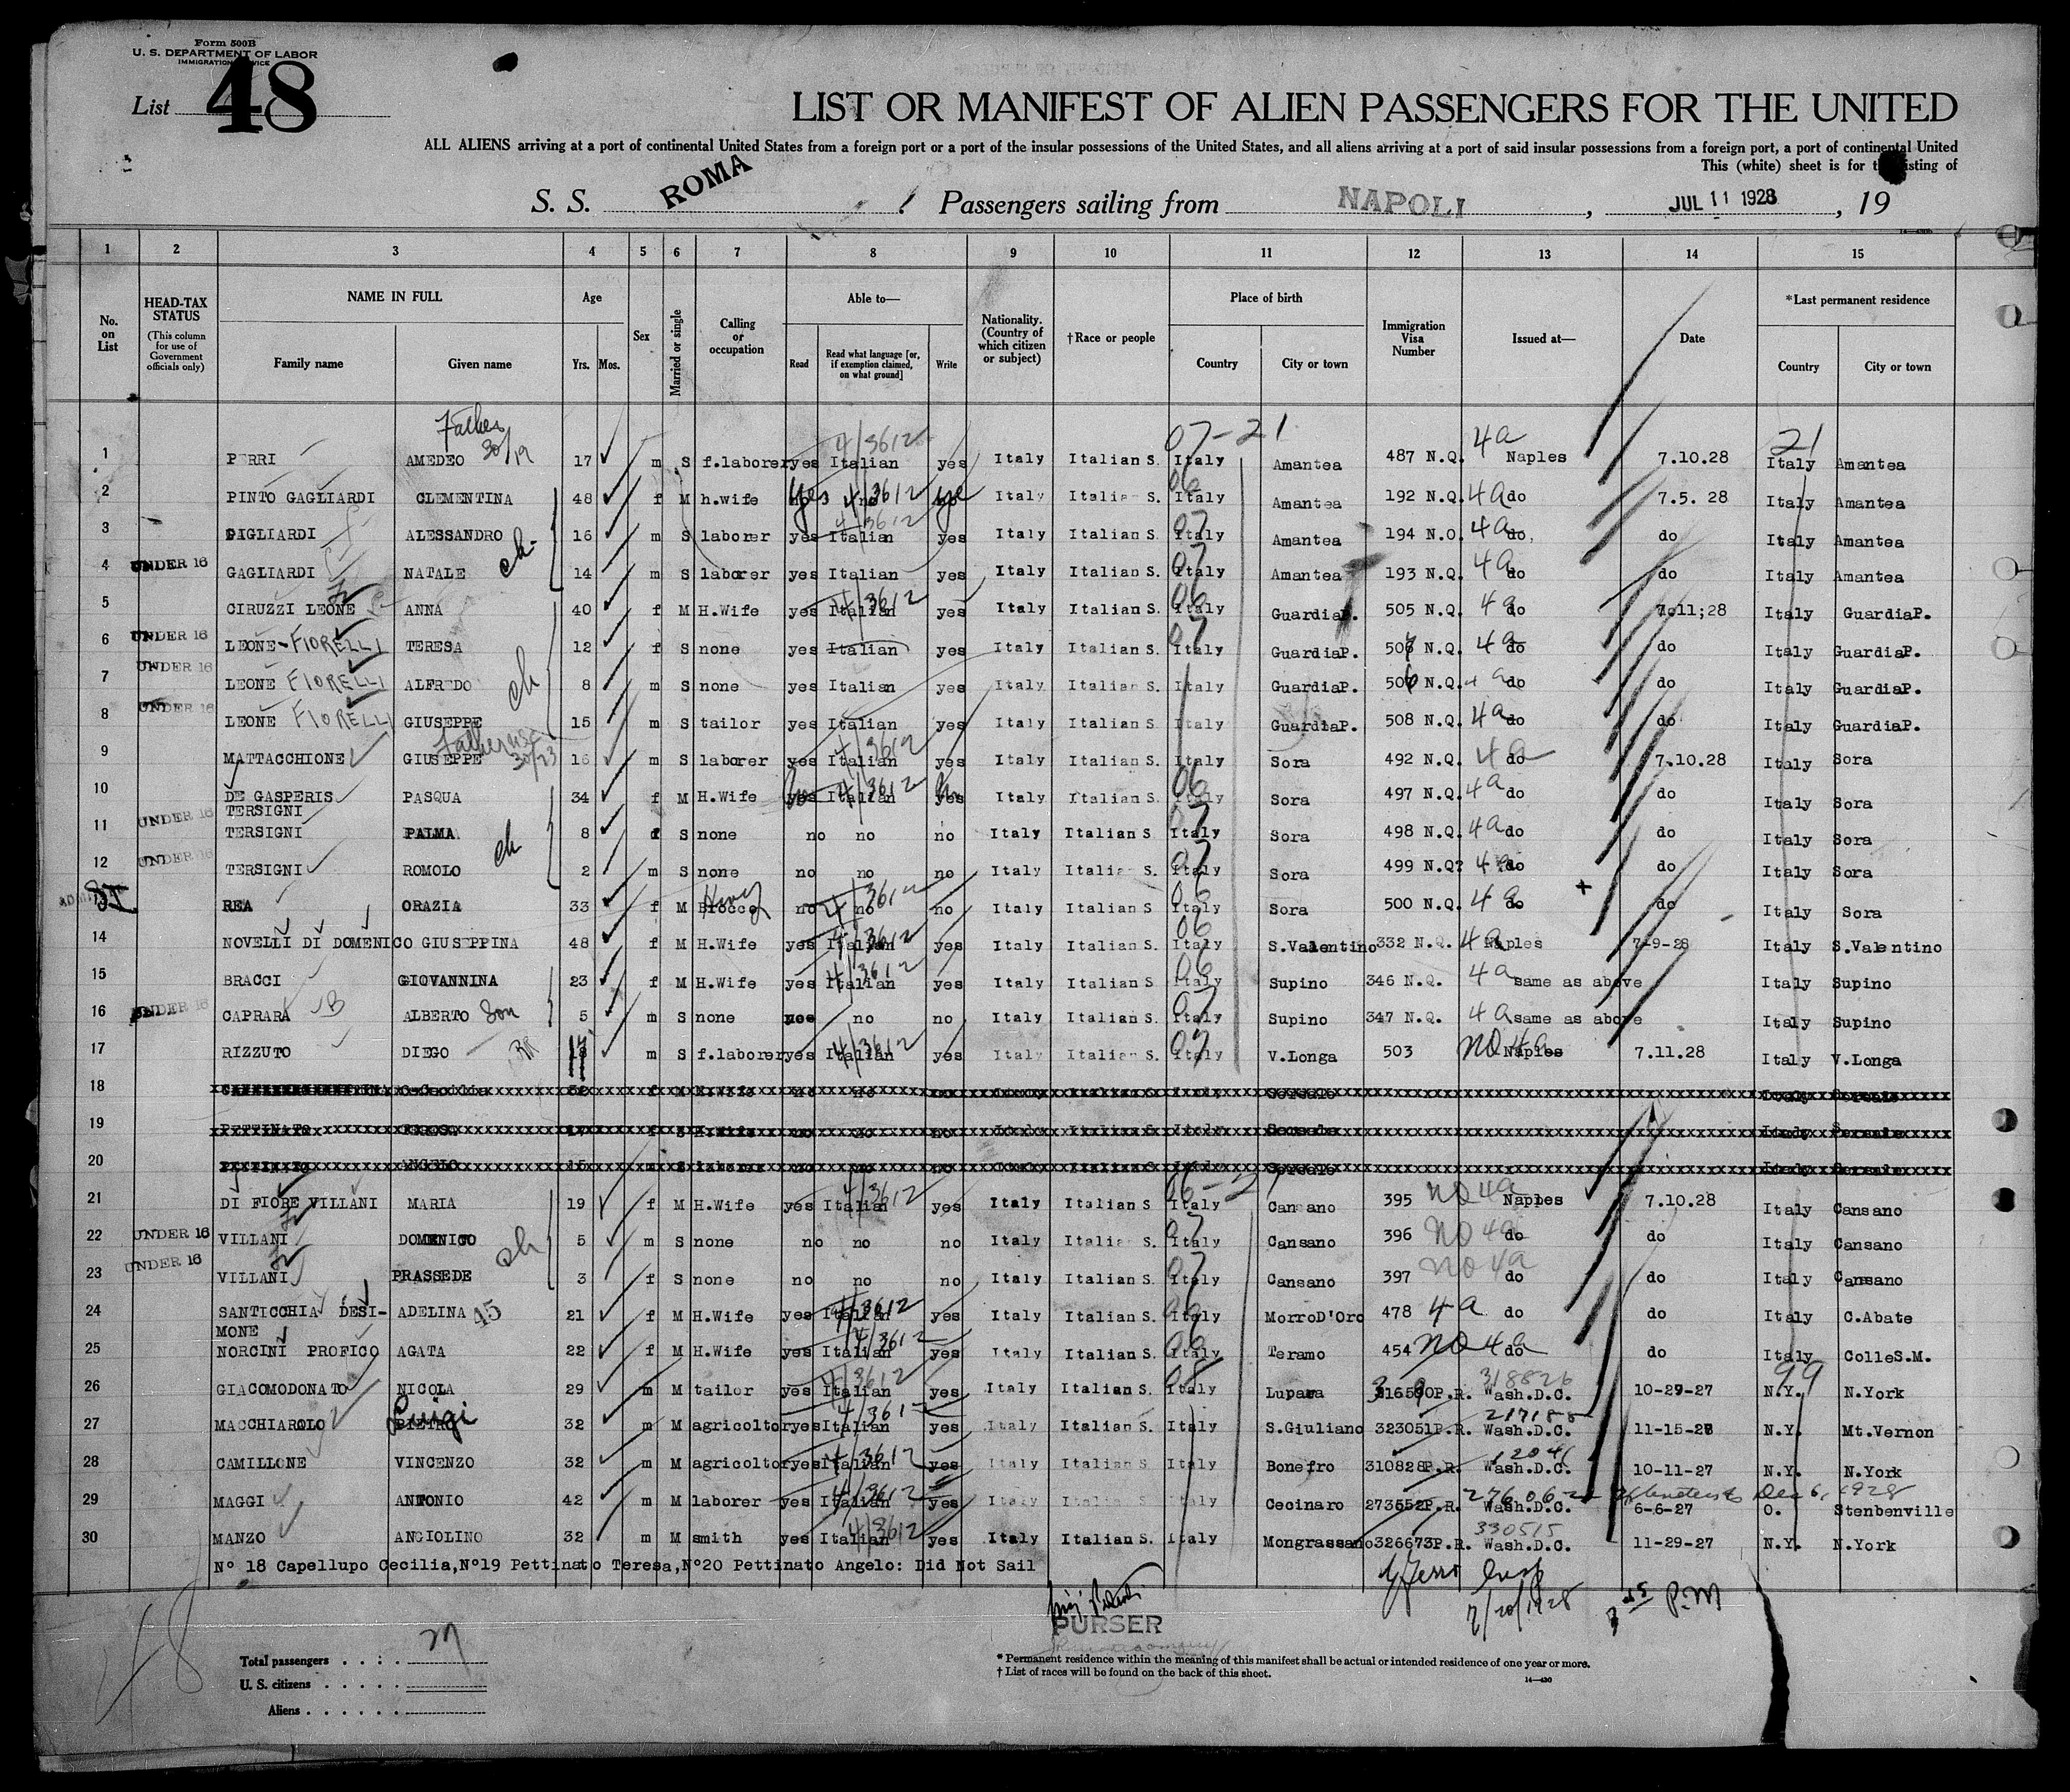 Form 500B
U. S. DEPARTMENT OF LABOR
IMMIGRATION SERVICE
List 48
LIST OR MANIFEST OF ALIEN PASSENGERS FOR THE UNITED
ALL ALIENS arriving at a port of continental United States from a foreign port or a port of the insular possessions of the United States, and all aliens arriving at a port of said insular possessions from a foreign port, a port of continental United
This (white) sheet is for the listing of
S. S. ROMA Passengers sailing from NAPOLI, JUL 11 1928, 19
1 2 3 4 5 6 7 8 9 10 11 12 13 14 15
No. on List
HEAD-TAX STATUS (This column for use of Government officials only)
NAME IN FULL Family name Given name
Age Yrs. Mos.
Sex
Married or single
Calling or occupation
Able to— Read Read what language [or, if exemption claimed, on what ground] Write
Nationality. (Country of which citizen or subject)
†Race or people
Place of birth Country City or town
Immigration Visa Number
Issued at—
Date
*Last permanent residence Country City or town
Father 30/19 4/3612 07-21 4a 21
1 PERRI AMEDEO 17 m S f.laborer yes Italian yes Italy Italian S. Italy Amantea 487 N.Q. Naples 7.10.28 Italy Amantea
2 PINTO GAGLIARDI CLEMENTINA 48 f M h.wife yes 4/3612 no ye Italy Italian S. 06 Italy Amantea 192 N.Q. 4a do 7.5. 28 Italy Amantea
3 GAGLIARDI ALESSANDRO 16 m S laborer yes 4/3612 Italian yes Italy Italian S. 07 Italy Amantea 194 N.Q. 4a do. do Italy Amantea
4 UNDER 16 GAGLIARDI NATALE ch 14 m S laborer yes Italian yes Italy Italian S. 07 Italy Amantea 193 N.Q. 4a do do Italy Amantea
5 CIRUZZI LEONE ANNA 40 f M H.Wife yes 4/3612 Italian yes Italy Italian S. 06 Italy GuardiaP. 505 N.Q. 4a do 7.11;28 Italy GuardiaP.
6 UNDER 16 LEONE-FIORELLI TERESA 12 f S none yes Italian yes Italy Italian S. 07 Italy GuardiaP. 507 N.Q. 4a do do Italy GuardiaP.
7 UNDER 16 LEONE FIORELLI ALFREDO ch 8 m S none yes Italian yes Italy Italian S. Italy GuardiaP. 506 N.Q. 4a do do Italy GuardiaP.
8 UNDER 16 LEONE FIORELLI GIUSEPPE 15 m S tailor yes Italian yes Italy Italian S. Italy GuardiaP. 508 N.Q. 4a do do Italy GuardiaP.
9 MATTACCHIONE GIUSEPPE Father 30/23 16 m S laborer yes 4/3612 Italian yes Italy Italian S. Italy Sora 492 N.Q. 4a do 7.10.28 Italy Sora
10 DE GASPERIS PASQUA 34 f M H.Wife yes 4/3612 Italian yes Italy Italian S. 06 Italy Sora 497 N.Q. 4a do do Italy Sora
TERSIGNI
11 UNDER 16 TERSIGNI PALMA 8 f S none no no no Italy Italian S 07 Italy Sora 498 N.Q. 4a do do Italy Sora
12 UNDER 16 TERSIGNI ROMOLO ch 2 m S none no no no Italy Italian S. 07 Italy Sora 499 N.Q? 4a do do Italy Sora
REA ORAZIA 33 f M no 4/3612 no no Italy Italian S 06 Italy Sora 500 N.Q. 4a do do Italy Sora
14 NOVELLI DI DOMENICO GIUSEPPINA 48 f M H.Wife yes 4/3612 Italian yes Italy Italian S 06 Italy S.Valentino 332 N.Q. 4a Naples 7-9-28 Italy S.Valentino
15 BRACCI GIOVANNINA 23 f M H.Wife yes 4/3612 Italian yes Italy Italian S 06 Italy Supino 346 N.Q. 4a same as above Italy Supino
16 UNDER 16 CAPRARA B ALBERTO Son 5 m S none no no Italy Italian S. 07 Italy Supino 347 N.Q. 4a same as above Italy Supino
17 RIZZUTO DIEGO m S f.laborer yes 4/3612 Italian yes Italy Italian S. 07 Italy V.Longa 503 NO 4a Naples 7.11.28 Italy V.Longa
18
19 PETTINATO
20 PETTINATO ANGELO 15 laborer
21 DI FIORE VILLANI MARIA 19 f M H.Wife yes 4/3612 Italian yes Italy Italian S 06-21 Italy Cansano 395 NO 4a Naples 7.10.28 Italy Cansano
22 UNDER 16 VILLANI DOMENICO ch 5 m S none no no no Italy Italian S. 07 Italy Cansano 396 NO 4a do do Italy Cansano
23 UNDER 16 VILLANI PRASSEDE 3 f S none no no no Italy Italian S. 07 Italy Cansano 397 NO 4a do do Italy Cansano
24 SANTICCHIA DESI- ADELINA 45 21 f M H.Wife yes 4/3612 Italian yes Italy Italian S. Italy MorroD'Oro 478 4a do do Italy C.Abate
MONE
25 NORCINI PROFICO AGATA 22 f M H.Wife yes 4/3612 Italian yes Italy Italian S. 06 Italy Teramo 454 NO 4a do do Italy ColleS.M.
26 GIACOMODONATO NICOLA 29 m M tailor yes 4/3612 Italian yes Italy Italian S. 08 Italy Lupara P.R. 318826 Wash.D.C. 10-29-27 99 N.Y. N.York
27 MACCHIAROLO Luigi PIETRO 32 m M agricoltor yes Italian yes Italy Italian S. Italy S.Giuliano 323051P.R. Wash.D.C. 11-15-28 N.Y. Mt.Vernon
28 CAMILLONE VINCENZO 32 m M agricoltor yes 4/3612 Italian yes Italy Italian S. Italy Bonefro 310828P.R. Wash.D.C. 10-11-27 N.Y. N.York
29 MAGGI ANTONIO 42 m M laborer yes 4/3612 Italian yes Italy Italian S. Italy Cecinaro 273552P.R. Wash.D.C. Dec 6, 1928 6-6-27 O. Stenbenville
30 MANZO ANGIOLINO 32 m M smith yes 4/3612 Italian yes Italy Italian S. Italy Mongrassano 326673P.R. 330515 Wash.D.C. 11-29-27 N.Y. N.York
Nº 18 Capellupo Cecilia,Nº19 Pettinato Teresa,Nº20 Pettinato Angelo: Did Not Sail
7/20/1928 P.M
PURSER
48
Total passengers 27
U. S. citizens
Aliens
* Permanent residence within the meaning of this manifest shall be actual or intended residence of one year or more.
† List of races will be found on the back of this sheet.
14—430